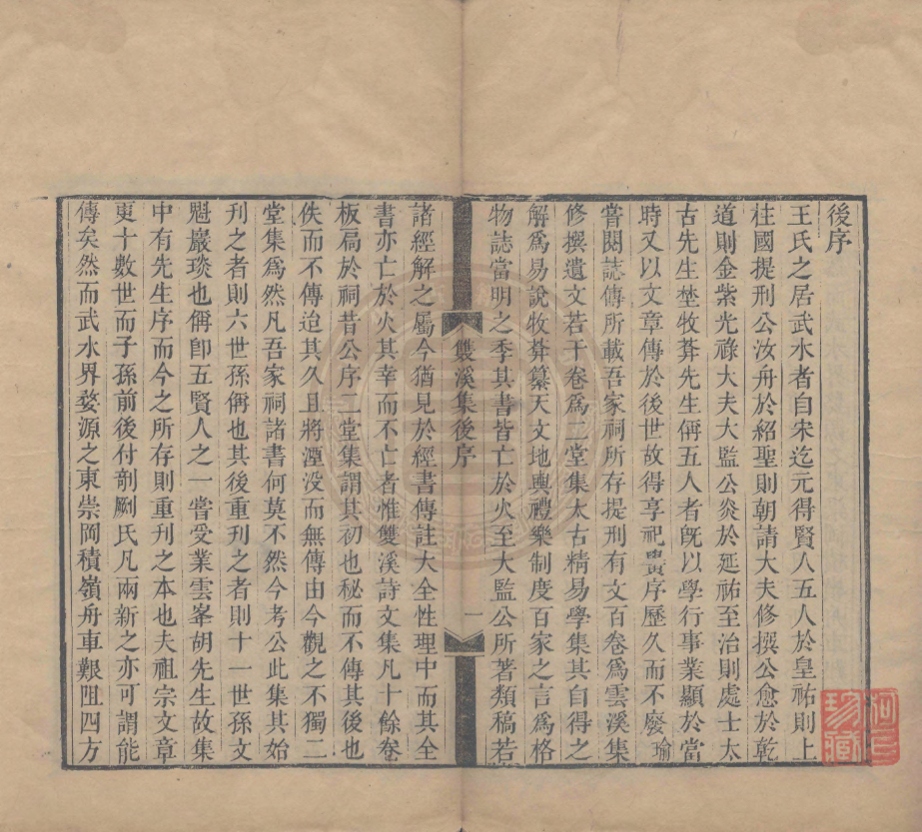 後序
王氏之居武水者自宋迄元得賢人五人於皇祐則上
柱國提刑公汝舟於紹聖則朝請大夫修撰公愈於乾
道則金紫光祿大夫大監公炎於延祐至治則處士太
古先生埜牧莽先生偁五人者旣以學行事業顯於當
時又以文章傳於後世故得享祀黌序歷久而不廢瑜
嘗閱誌傳所載吾家祠所存提刑有文百卷爲雲溪集
修撰遺文若干卷爲二堂集太古精易學集其自得之
解爲易說牧莽纂天文地輿禮樂制度百家之言爲格
物誌當明之季其書皆亡於火至大監公所著類稿若
雙溪集後序
一
諸經解之屬今猶見於經書傳註大全性理中而其全
書亦亡於火其幸而不亡者惟雙溪詩文集凡十餘卷
板扃於祠昔公序二堂集謂其初也秘而不傳其後也
佚而不傳迨其久且將湮没而無傳由今觀之不獨二
堂集爲然凡吾家祠諸書何莫不然今考公此集其始
刊之者則六世孫偁也其後重刊之者則十一世孫文
魁巖琰也偁卽五賢人之一嘗受業雲峯胡先生故集
中有先生序而今之所存則重刊之本也夫祖宗文章
更十數世而子孫前後付剞劂氏凡兩新之亦可謂能
傳矣然而武水界婺源之東崇岡積嶺舟車艱阻四方